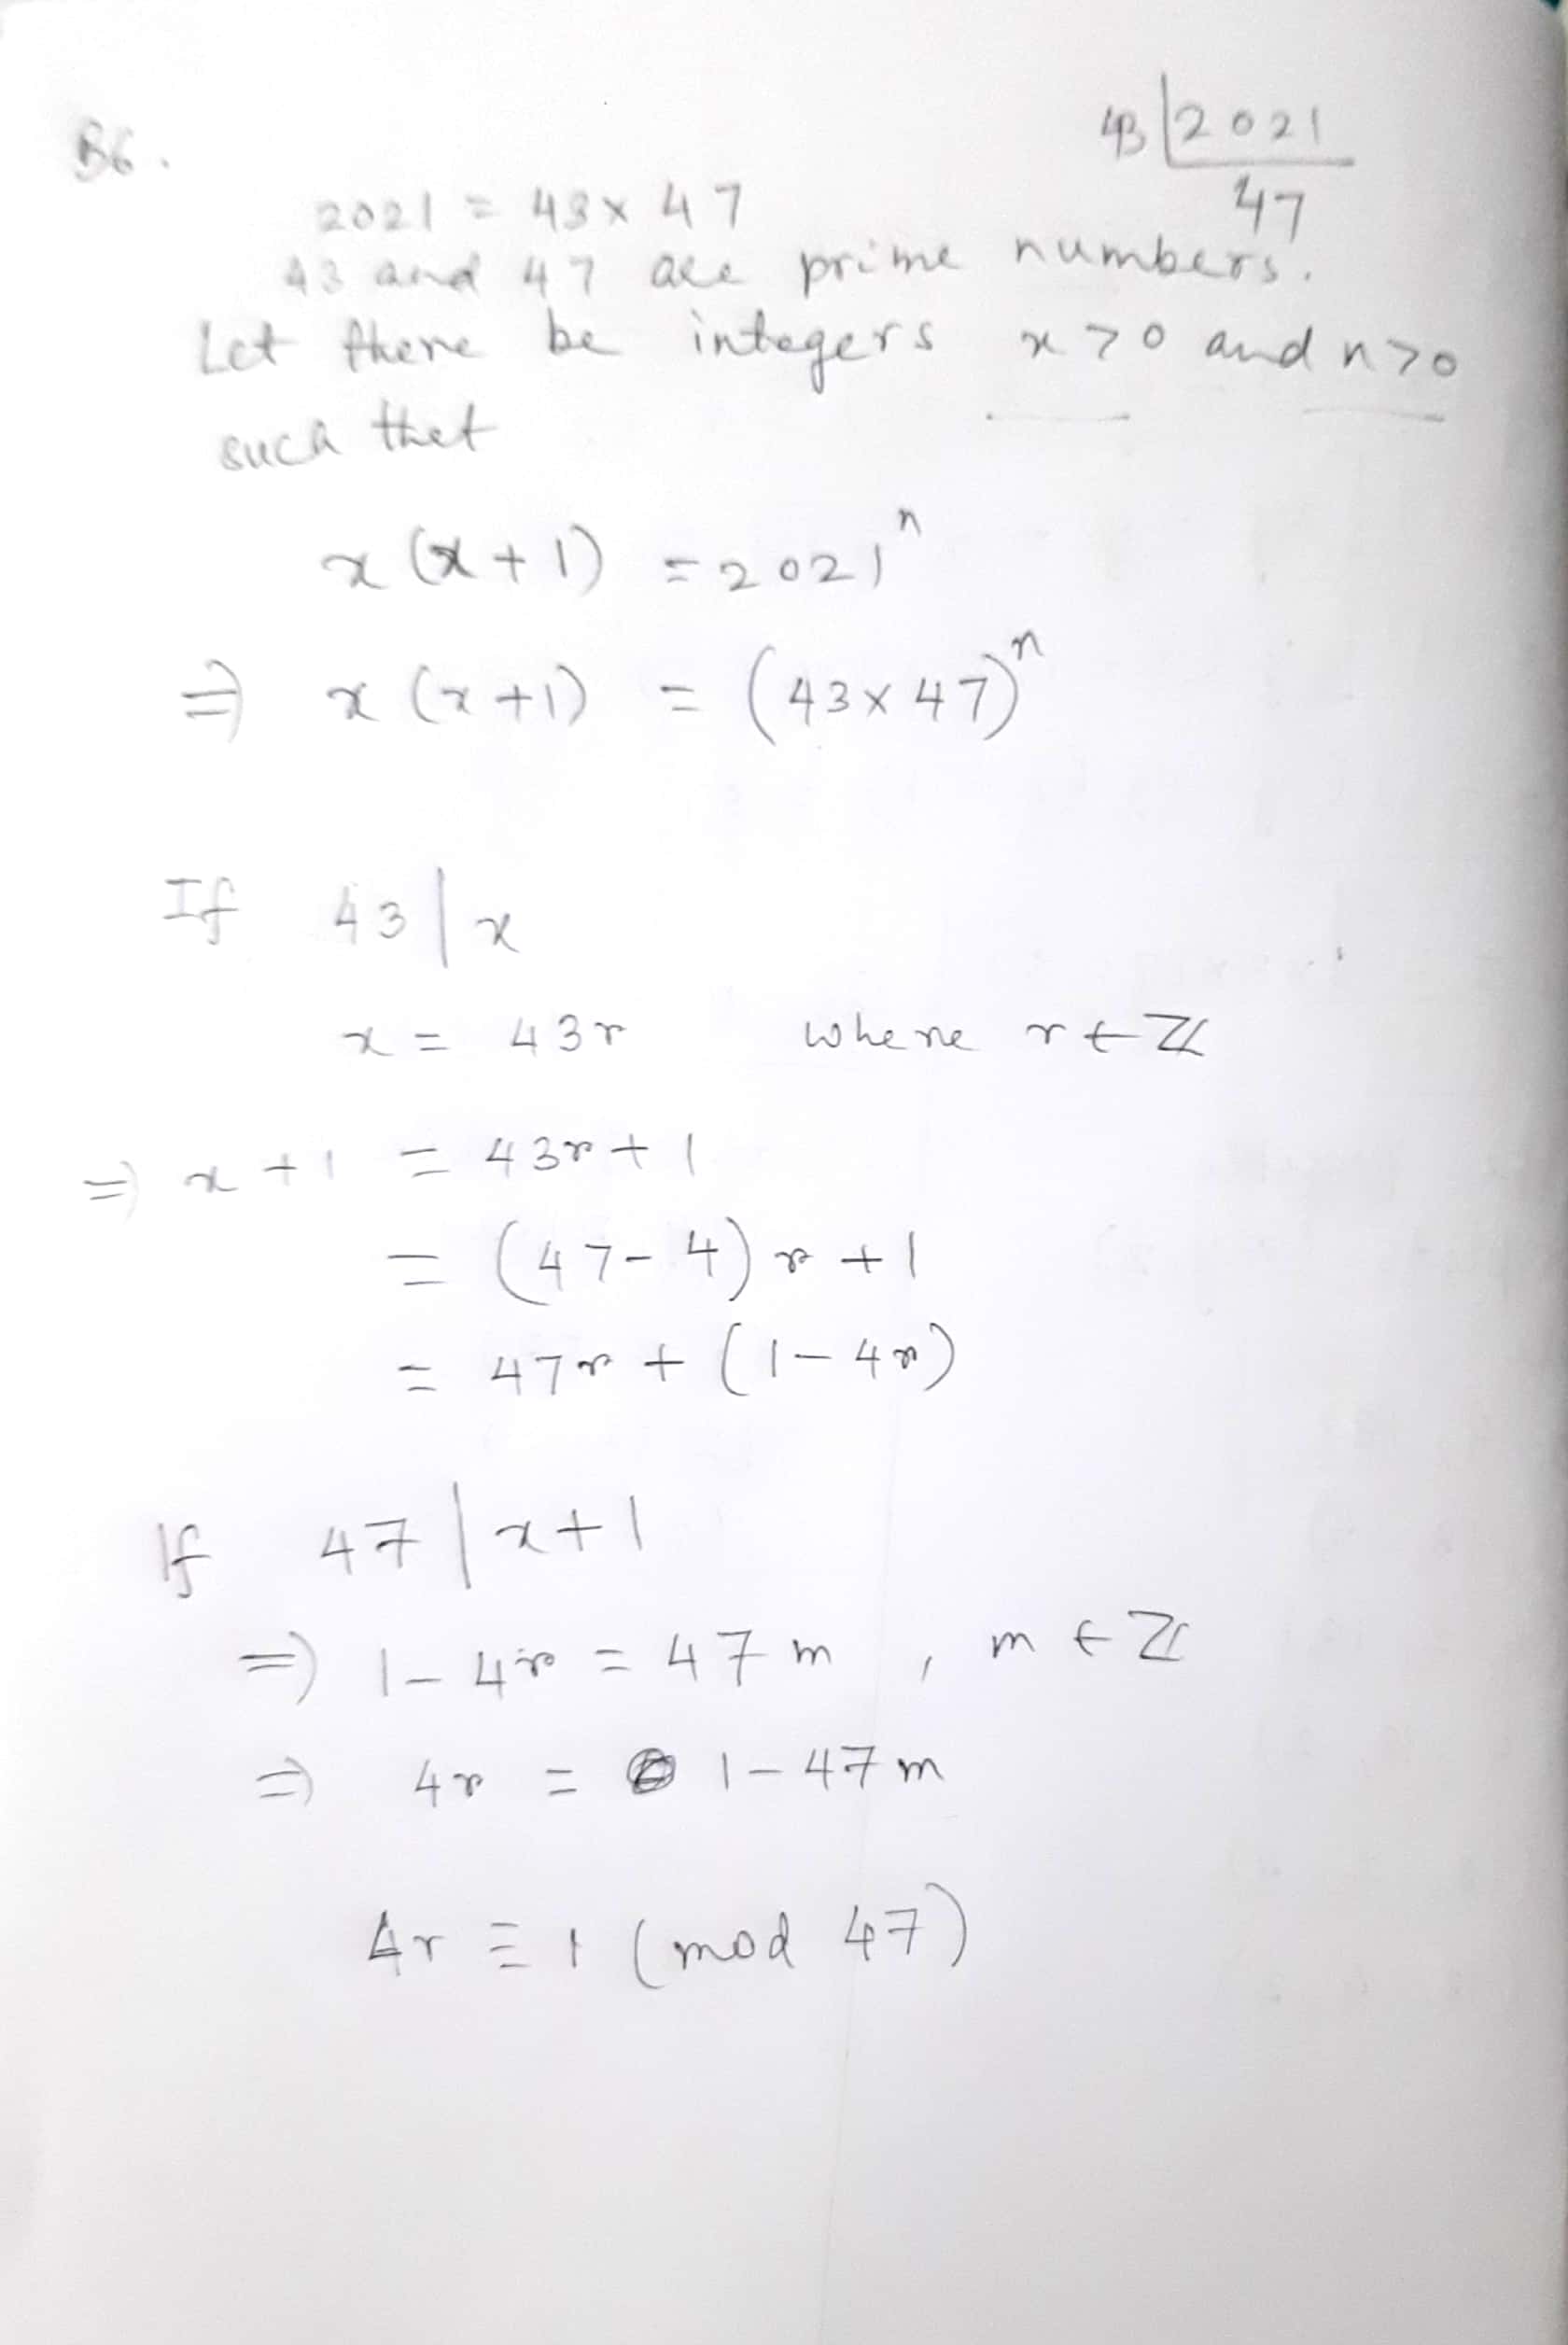 B6.
43 | 2021
47
2021 = 43 x 47
43 and 47 are prime numbers.
Let there be integers x > 0 and n > 0
such that
x (x + 1) = 2021^n
⇒ x (x + 1) = (43 x 47)^n
If 43 | x
x = 43r where r ∈ ℤ
⇒ x + 1 = 43r + 1
= (47 - 4) r + 1
= 47r + (1 - 4r)
If 47 | x + 1
⇒ 1 - 4r = 47 m , m ∈ ℤ
⇒ 4r = 1 - 47 m
4r ≡ 1 (mod 47)